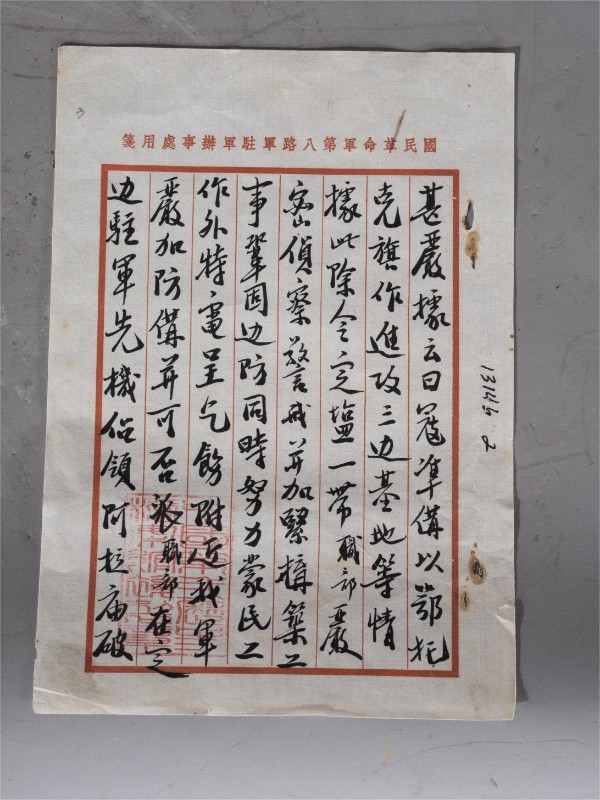 國民革命軍第八路軍駐軍辦事處用箋
甚嚴據云日寇準備以鄂托
克旗作進攻三边基地等情
據此除令定鹽一帶職部嚴
密偵察警戒并加緊構築工
事鞏固边防同時努力蒙民工
作外特電呈乞飭附近我軍
嚴加防備并可否派職部在定
边駐軍先機佔領阿拉庙破
13146 2